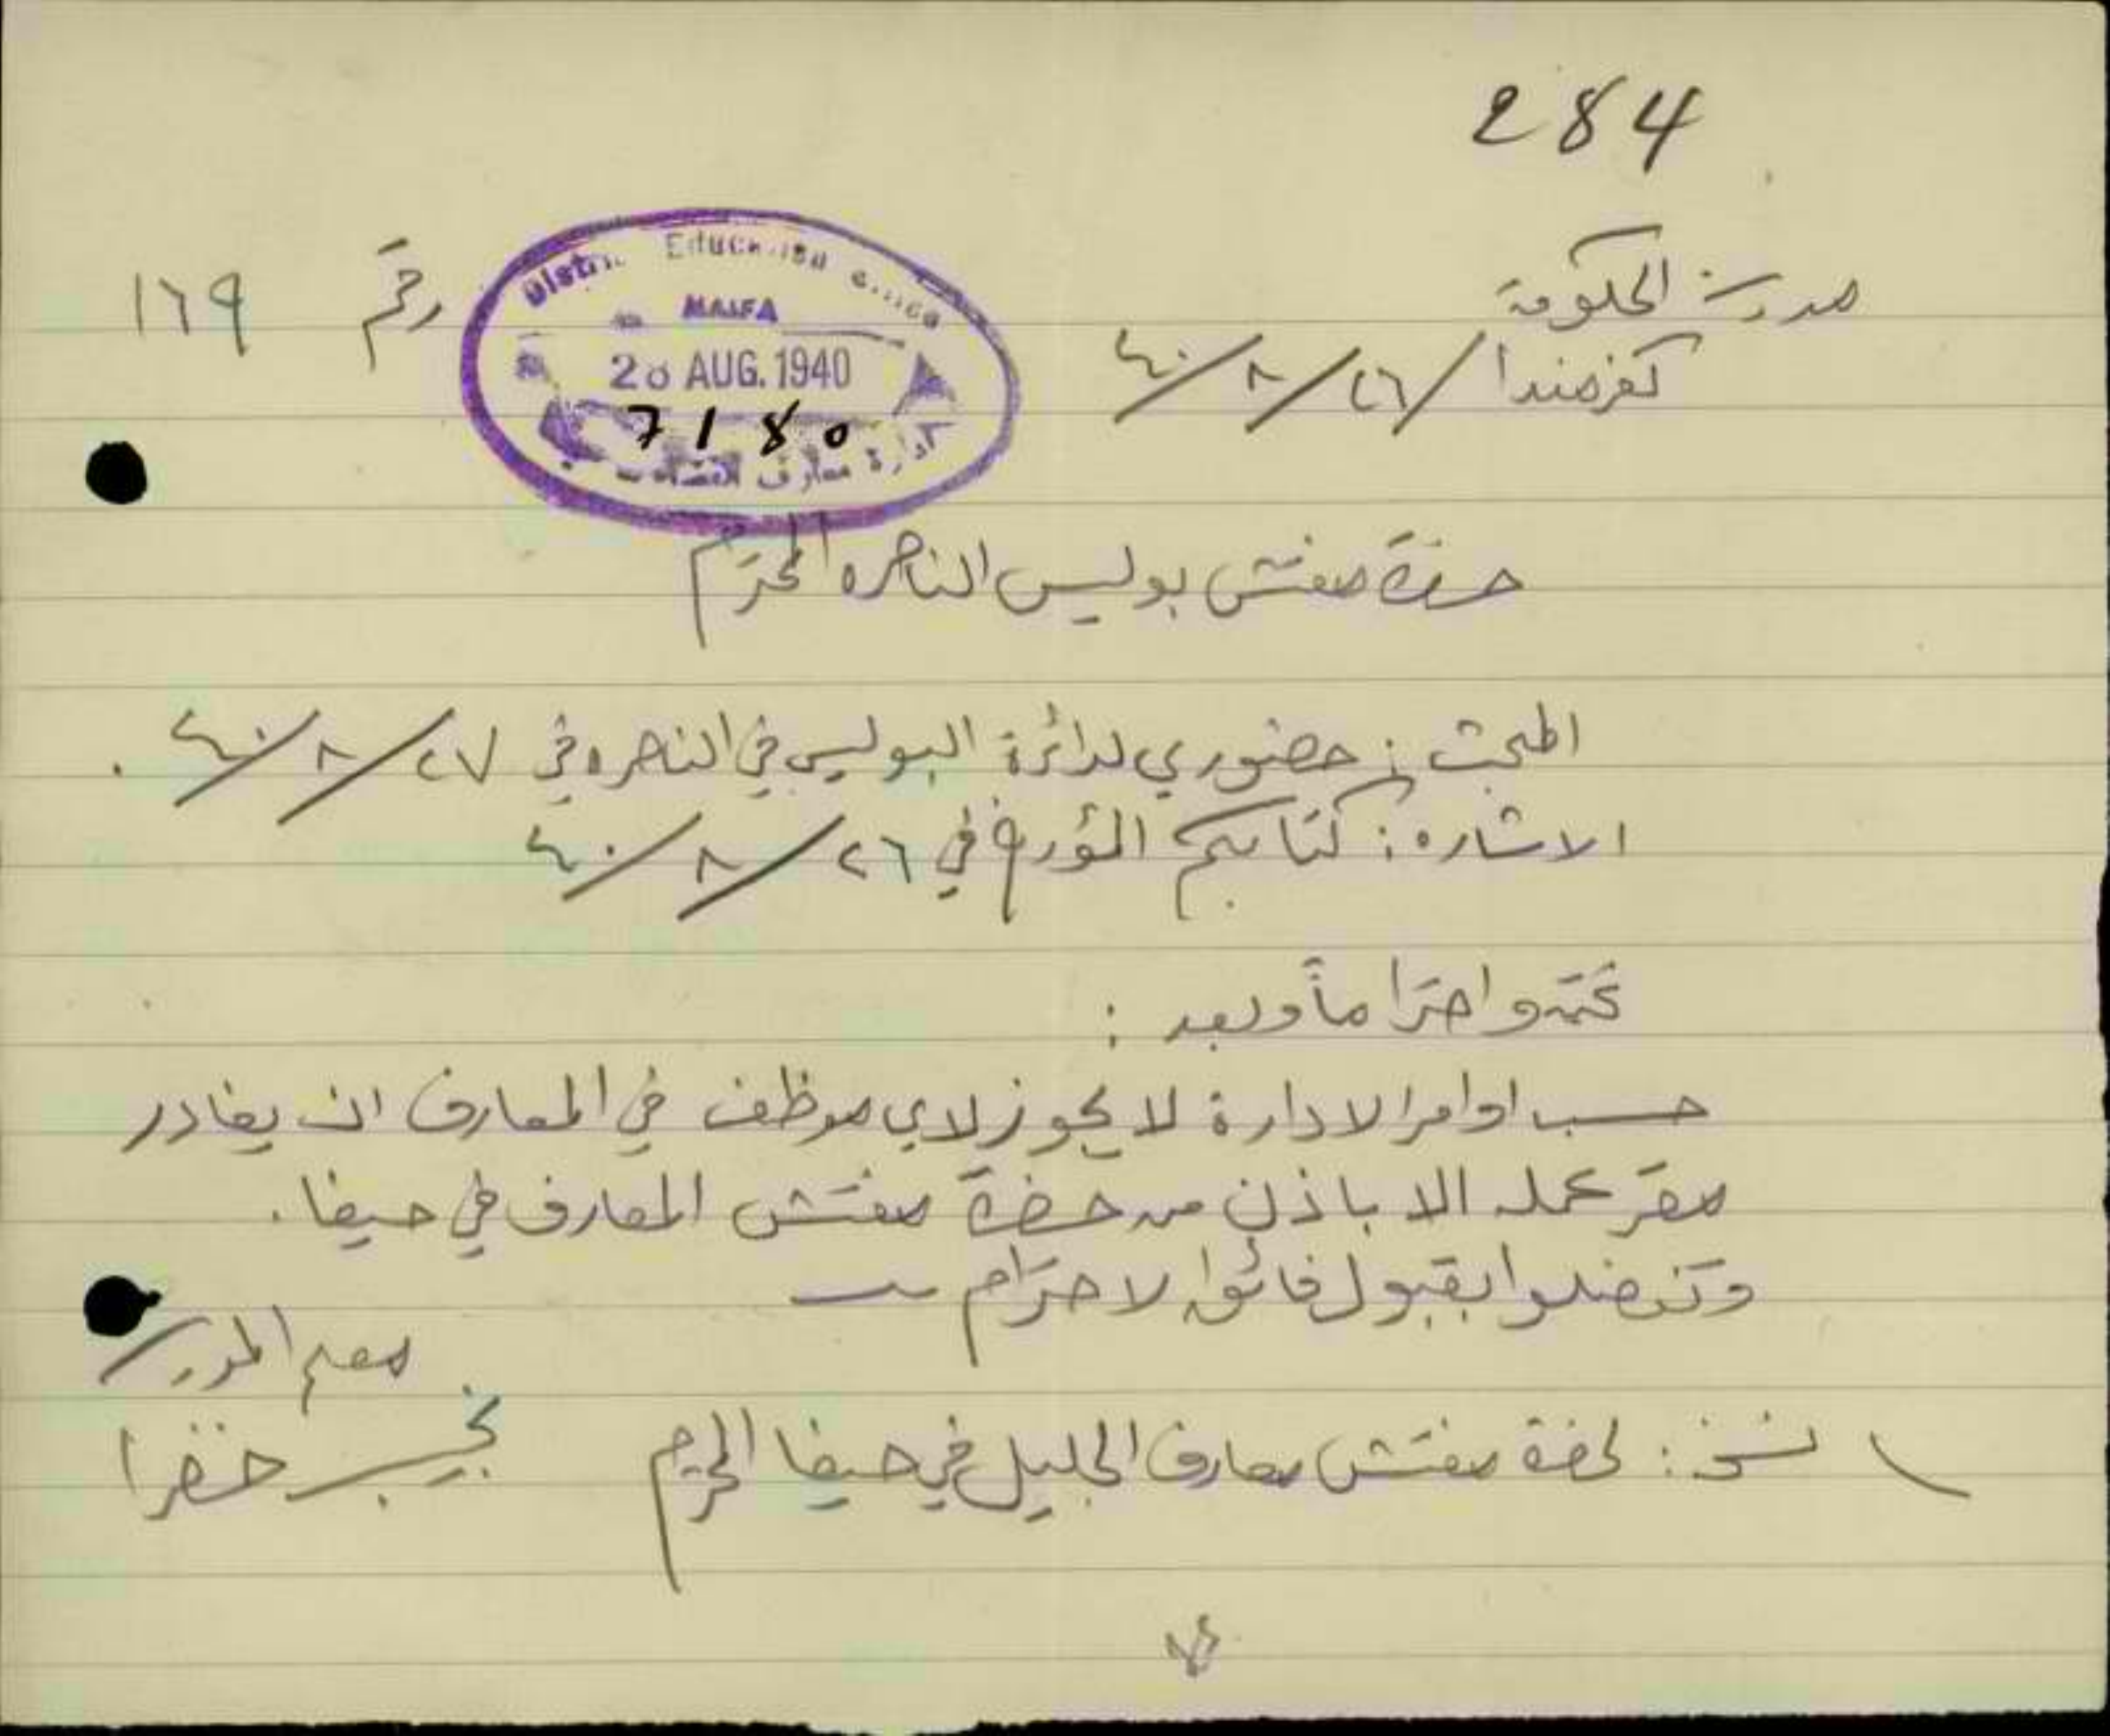 284
مدرسة الحكومة
كفرمندا ٢٦/٨/٤٠
رقم ١٦٩
Education
HAIFA
AUG. 1940
7180
معارف
حضرة مفتش بوليس الناصره المحترم
المبحث : حضوري لدائرة البوليس في الناصره في ٢٧/٨/٤٠ .
الاشاره : كتابكم المؤرخ في ٢٦/٨/٤٠
تحية واحتراماً وبعد :
حسب اوامر الادارة لا يجوز لاي موظف في المعارف ان يغادر
مقر عمله الا باذن من حضرة مفتش المعارف في حيفا .
وتفضلوا بقبول فائق الاحترام
معلم المدرسة
نجيب خضرا
نسخة : لحضرة مفتش معارف الجليل في حيفا المحترم